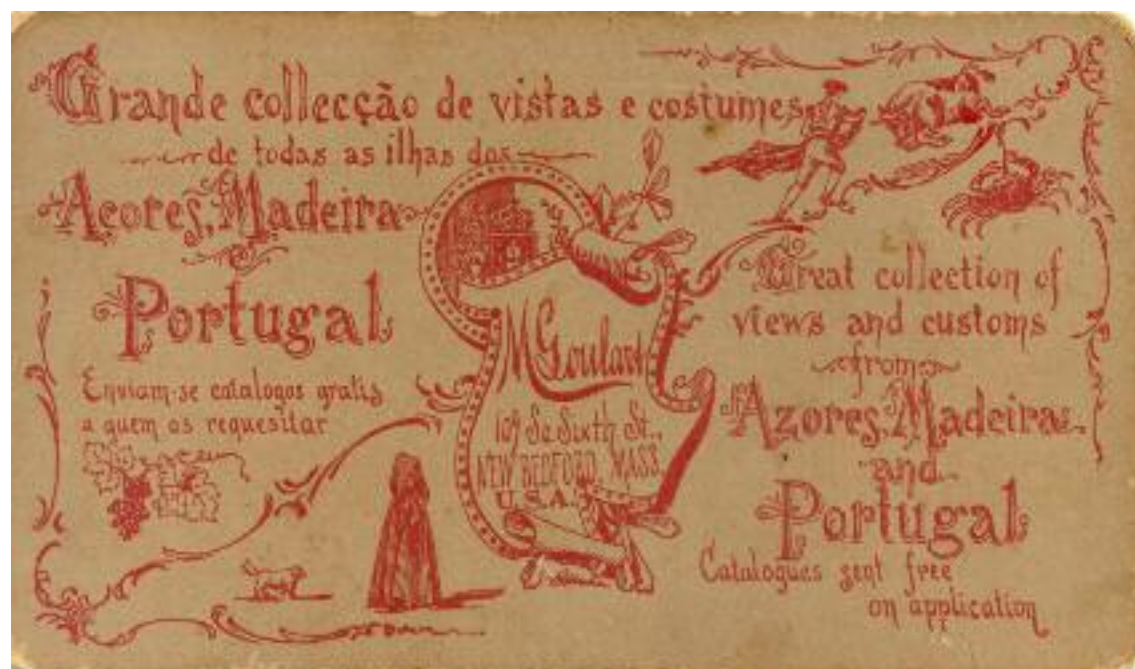 Grande collecção de vistas e costumes
de todas as ilhas dos
Açores, Madeira
Portugal
Enviam-se catalogos gratis
a quem os requesitar
M Goulart
109 So Sixth St.,
NEW BEDFORD, MASS.
U.S.A.
Great collection of
views and customs
from
Azores, Madeira
and
Portugal
Catalogues sent free
on application